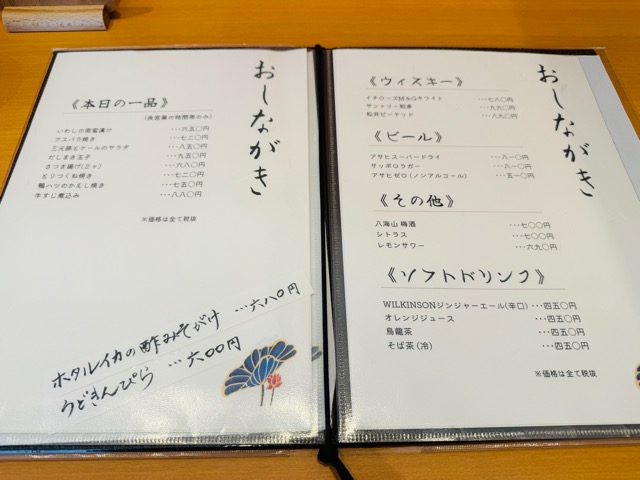 おしながき
《本日の一品》
(夜営業の時間帯のみ)
いわしの南蛮漬け ･･･六五〇円
アスパラ焼き ･･･七二〇円
三元豚とケールのサラダ ･･･八五〇円
だしまき玉子 ･･･九五〇円
さつま揚げ(二ヶ) ･･･六八〇円
とりつくね焼き ･･･七二〇円
鴨ハツのかえし焼き ･･･七五〇円
牛すじ煮込み ･･･八八〇円
※価格は全て税抜
ホタルイカの酢みそがけ ･･･六八〇円
うどきんぴら ･･･六〇〇円
おしながき
《ウィスキー》
イチローズM&Gホワイト ･･･七八〇円
サントリー知多 ･･･九九〇円
松井ピーテッド ･･･八九〇円
《ビール》
アサヒスーパードライ ･･･八一〇円
サッポロラガー ･･･八一〇円
アサヒゼロ(ノンアルコール) ･･･五一〇円
《その他》
八海山 梅酒 ･･･七〇〇円
シトラス ･･･七〇〇円
レモンサワー ･･･六九〇円
《ソフトドリンク》
WILKINSONジンジャーエール(辛口) ･･･四五〇円
オレンジジュース ･･･四五〇円
烏龍茶 ･･･四五〇円
そば茶(冷) ･･･四五〇円
※価格は全て税抜